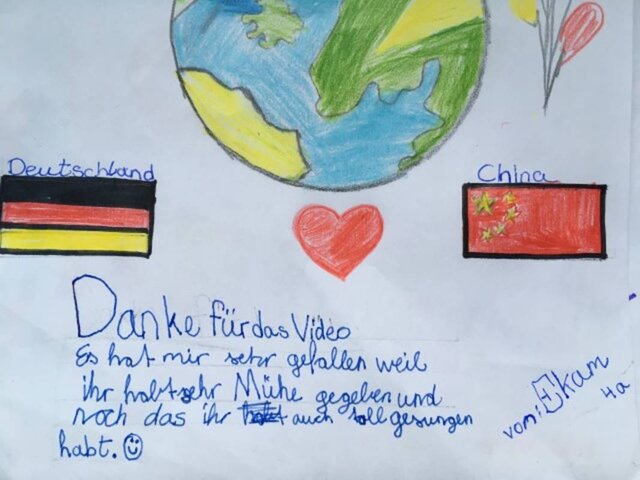 Deutschland
China
Danke für das Video
Es hat mir sehr gefallen weil
ihr habt sehr Mühe gegeben und
noch das ihr auch toll gesungen
habt. ☺
vom: Ekam
4a